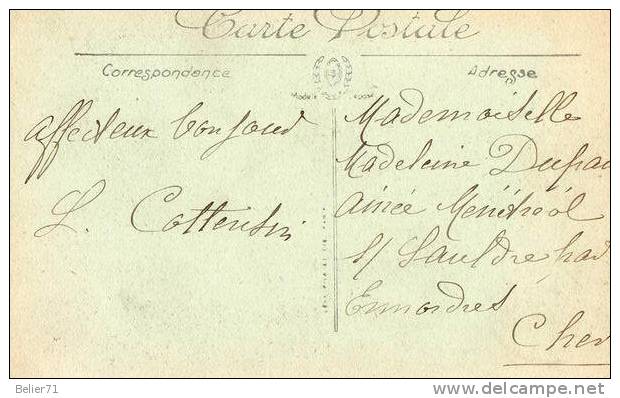 Carte Postale
Correspondance
Adresse
affectueux bonjour
L. Cottensin
Mademoiselle
Madeleine Dupa
ainée Ménétréol
s/ Sauldre par
Ennordres
Cher
Belier71
delcampe.net